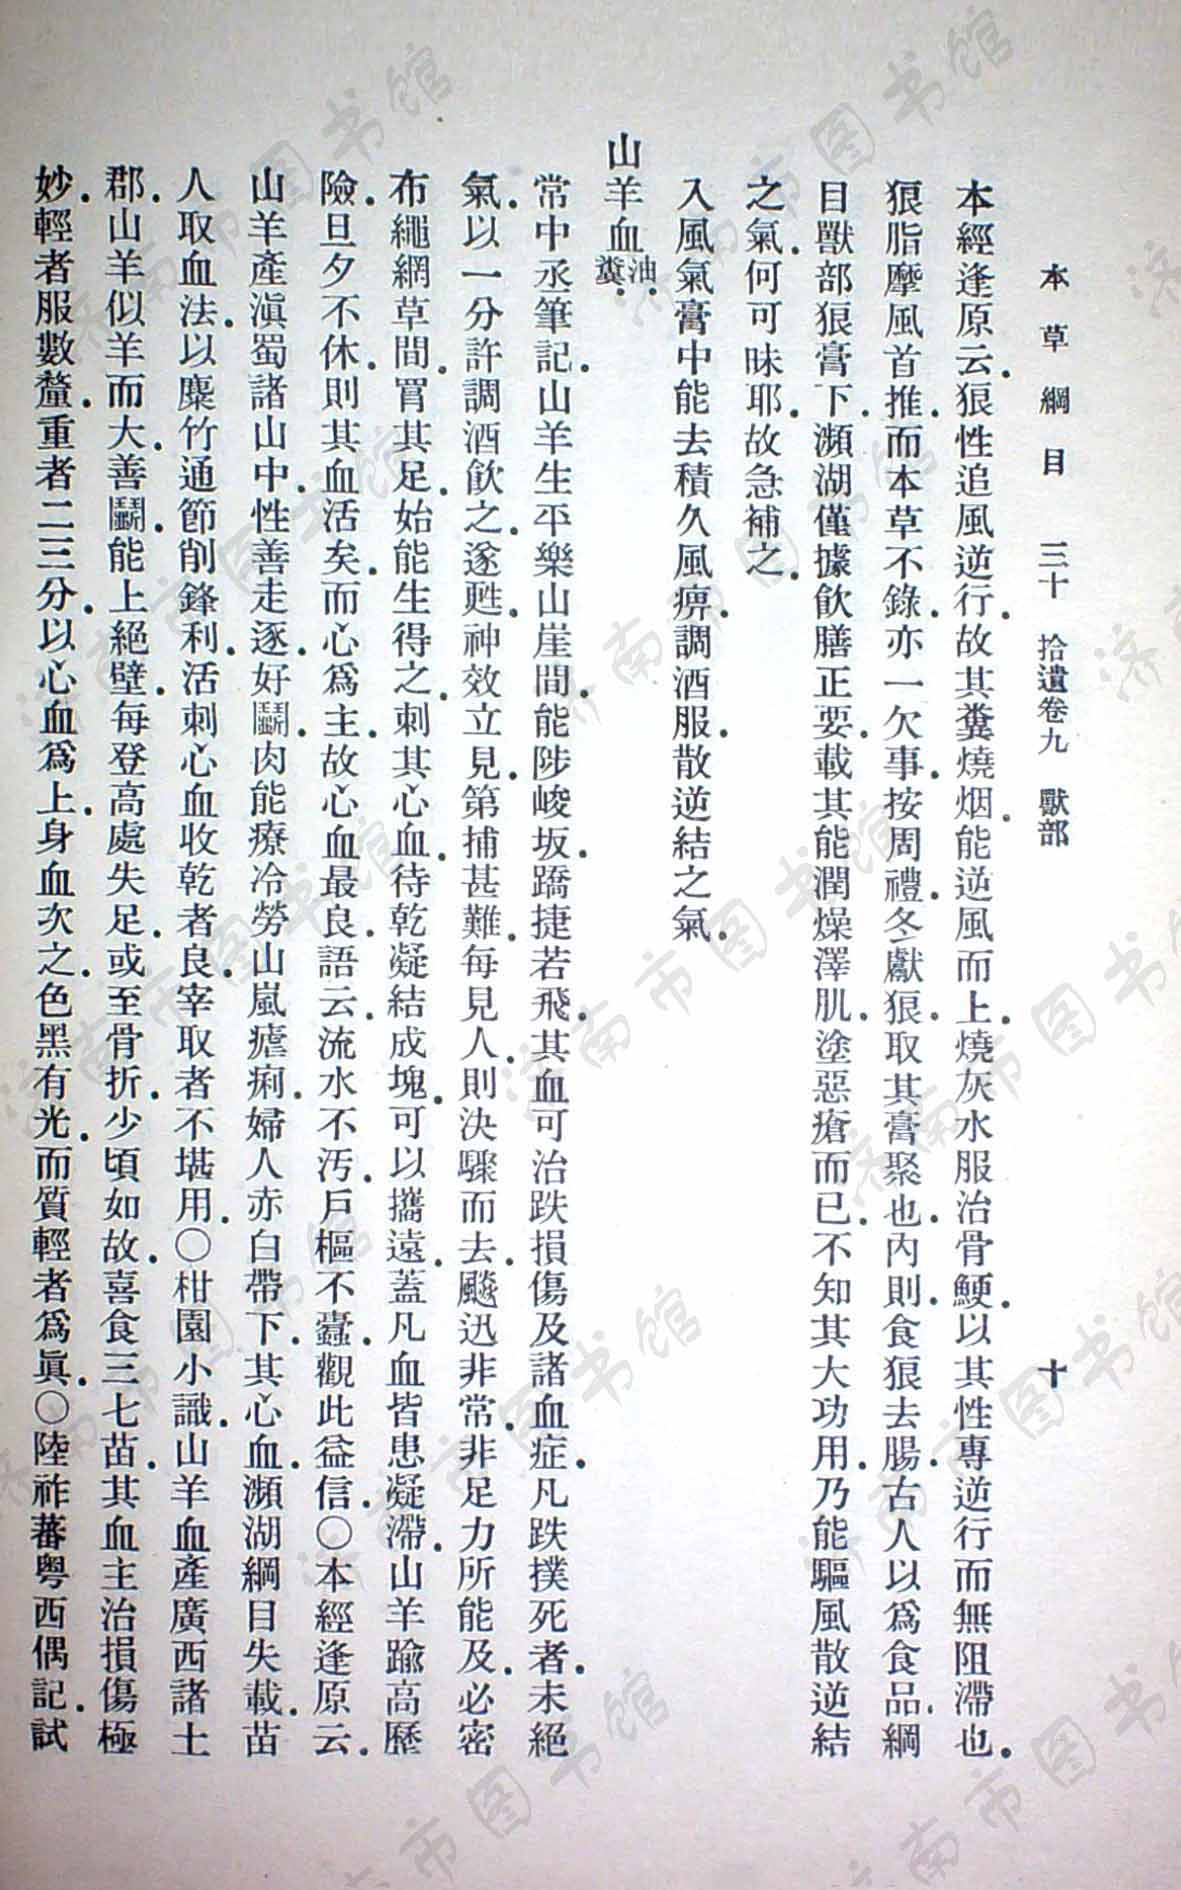 本草綱目　三十　拾遺卷九　獸部　十
本經逢原云．狼性追風逆行．故其糞燒烟．能逆風而上．燒灰水服治骨鯁．以其性專逆行而無阻滯也．
狼脂摩風首推．而本草不錄．亦一欠事．按周禮．冬獻狼．取其膏聚也．內則．食狼去腸．古人以爲食品．綱
目獸部狼膏下．瀕湖僅據飲膳正要．載其能潤燥澤肌．塗惡瘡而已．不知其大功用．乃能驅風散逆結
之氣．何可昧耶．故急補之．
入風氣膏中能去積久風痹．調酒服．散逆結之氣．
山羊血油．糞．
常中丞筆記．山羊生平樂山崖間．能陟峻坂．蹻捷若飛．其血可治跌損傷及諸血症．凡跌撲死者．未絕
氣．以一分許調酒飲之．遂甦．神效立見．第捕甚難．每見人．則決驟而去．飈迅非常．非足力所能及．必密
布繩網草間．罥其足．始能生得之．刺其心血．待乾凝結成塊．可以攜遠．蓋凡血皆患凝滯．山羊踰高歷
險．旦夕不休．則其血活矣．而心爲主．故心血最良．語云．流水不汚．戶樞不蠹．觀此益信．〇本經逢原云．
山羊產滇蜀諸山中．性善走逐．好鬭．肉能療冷勞山嵐瘧痢．婦人赤白帶下．其心血．瀕湖綱目失載．苗
人取血法．以麋竹通節削鋒利．活刺心血收乾者良．宰取者不堪用．〇柑園小識．山羊血產廣西諸土
郡．山羊似羊而大．善鬭．能上絕壁．每登高處失足．或至骨折．少頃如故．喜食三七苗．其血主治損傷極
妙．輕者服數釐．重者二三分．以心血爲上．身血次之．色黑有光．而質輕者爲眞．〇陸祚蕃粵西偶記．試